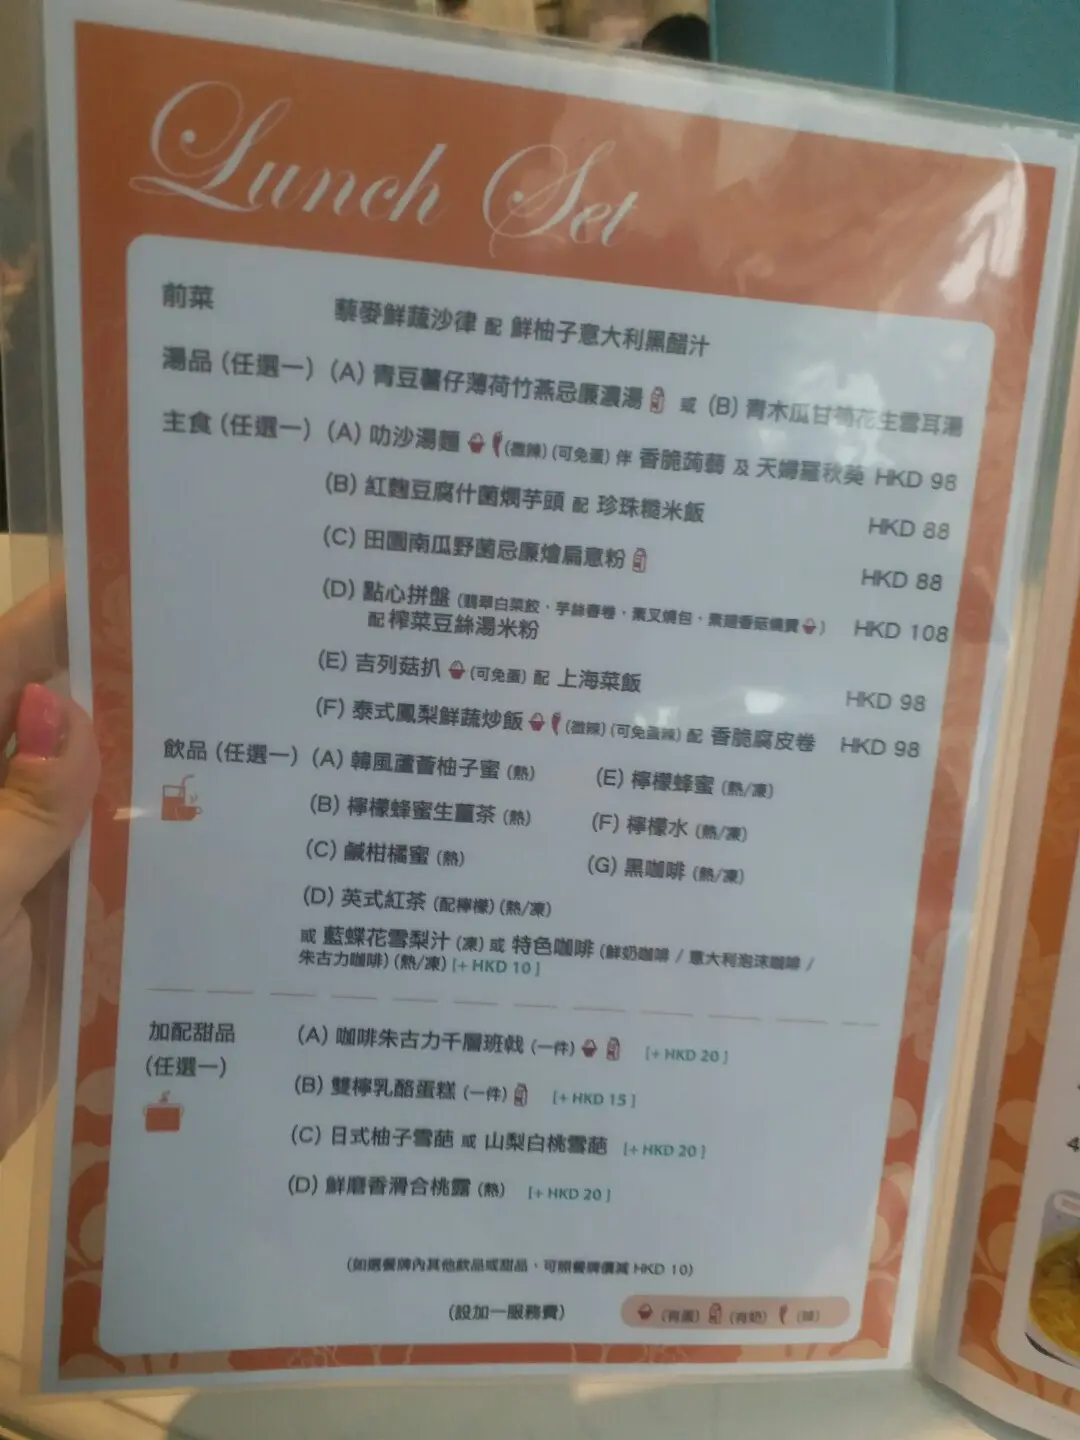 Lunch Set
前菜 藜麥鮮蔬沙律 配 鮮柚子意大利黑醋汁
湯品 (任選一) (A) 青豆薯仔薄荷竹燕忌廉濃湯 或 (B) 青木瓜甘筍花生雪耳湯
主食 (任選一) (A) 叻沙湯麵 (微辣) (可免蛋) 伴 香脆蒟蒻 及 天婦羅秋葵 HKD 98
(B) 紅麴豆腐什菌燜芋頭 配 珍珠糙米飯 HKD 88
(C) 田園南瓜野菌忌廉燴扁意粉 HKD 88
(D) 點心拼盤 (翡翠白菜餃、芋絲春卷、素叉燒包、素翅香菇燒賣) HKD 108
配 榨菜豆絲湯米粉
(E) 吉列菇扒 (可免蛋) 配 上海菜飯 HKD 98
(F) 泰式鳳梨鮮蔬炒飯 (微辣) (可免蛋辣) 配 香脆腐皮卷 HKD 98
飲品 (任選一) (A) 韓風蘆薈柚子蜜 (熱) (E) 檸檬蜂蜜 (熱/凍)
(B) 檸檬蜂蜜生薑茶 (熱) (F) 檸檬水 (熱/凍)
(C) 鹹柑橘蜜 (熱) (G) 黑咖啡 (熱/凍)
(D) 英式紅茶 (配檸檬) (熱/凍)
或 藍蝶花雪梨汁 (凍) 或 特色咖啡 (鮮奶咖啡 / 意大利泡沫咖啡 /
朱古力咖啡) (熱/凍) [+ HKD 10]
加配甜品 (A) 咖啡朱古力千層班戟 (一件) [+ HKD 20]
(任選一) (B) 雙檸乳酪蛋糕 (一件) [+ HKD 15]
(C) 日式柚子雪葩 或 山梨白桃雪葩 [+ HKD 20]
(D) 鮮磨香滑合桃露 (熱) [+ HKD 20]
(如選餐牌內其他飲品或甜品，可照餐牌價減 HKD 10)
(設加一服務費) (有蛋) (有奶) (辣)